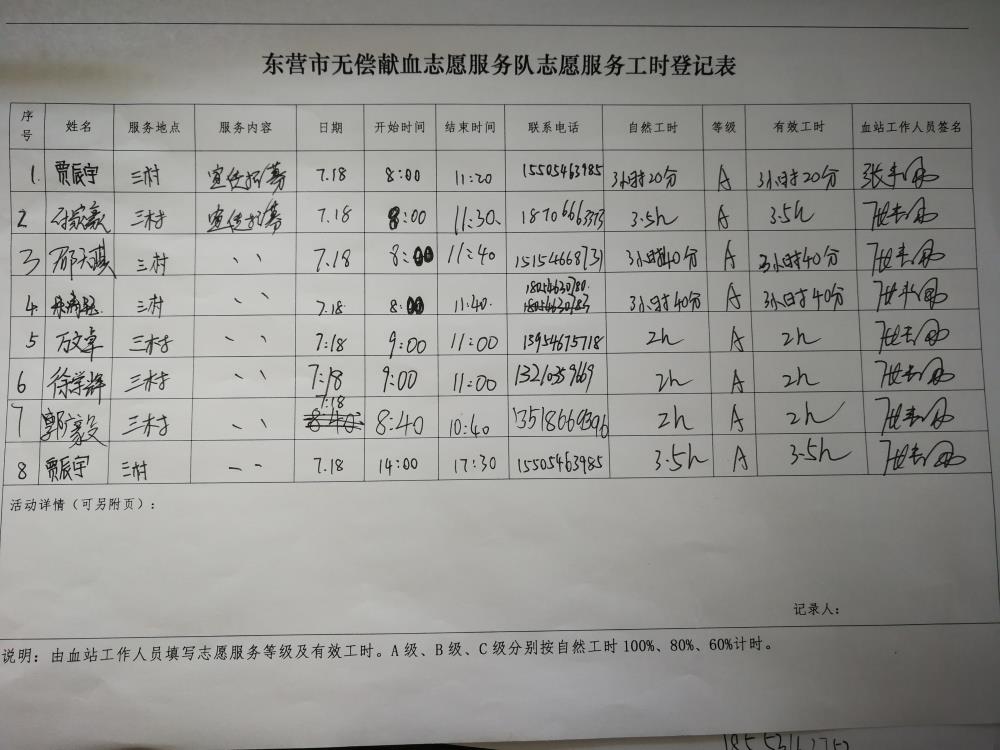 东营市无偿献血志愿服务队志愿服务工时登记表
序号 姓名 服务地点 服务内容 日期 开始时间 结束时间 联系电话 自然工时 等级 有效工时 血站工作人员签名
1. 贾辰宇 三村 宣传招募 7.18 8:00 11:20 15505463985 3小时20分 A 3小时20分
2 付家豪 三村 宣传招募 7.18 8:00 11:30 18706663373 3.5h A 3.5h
3 三村 〃 7.18 8:00 11:40 15154668731 3小时40分 A 3小时40分
18054630780.
4. 三村 〃 7.18 8:00 11:40. 3小时40分 A 3小时40分
5 万文卓 三村 〃 7:18 9:00 11:00 13954675718 2h A 2h
6 徐学辉 三村 〃 7:18 9:00 11:00 2h A 2h
7.18
7 郭家毅 三村 〃 8:40 8:40 10:40 13518669396 2h A 2h
8 贾辰宇 三村 〃 7.18 14:00 17:30 15505463985 3.5h A 3.5h
活动详情（可另附页）：
记录人：
说明：由血站工作人员填写志愿服务等级及有效工时。A级、B级、C级分别按自然工时100%、80%、60%计时。